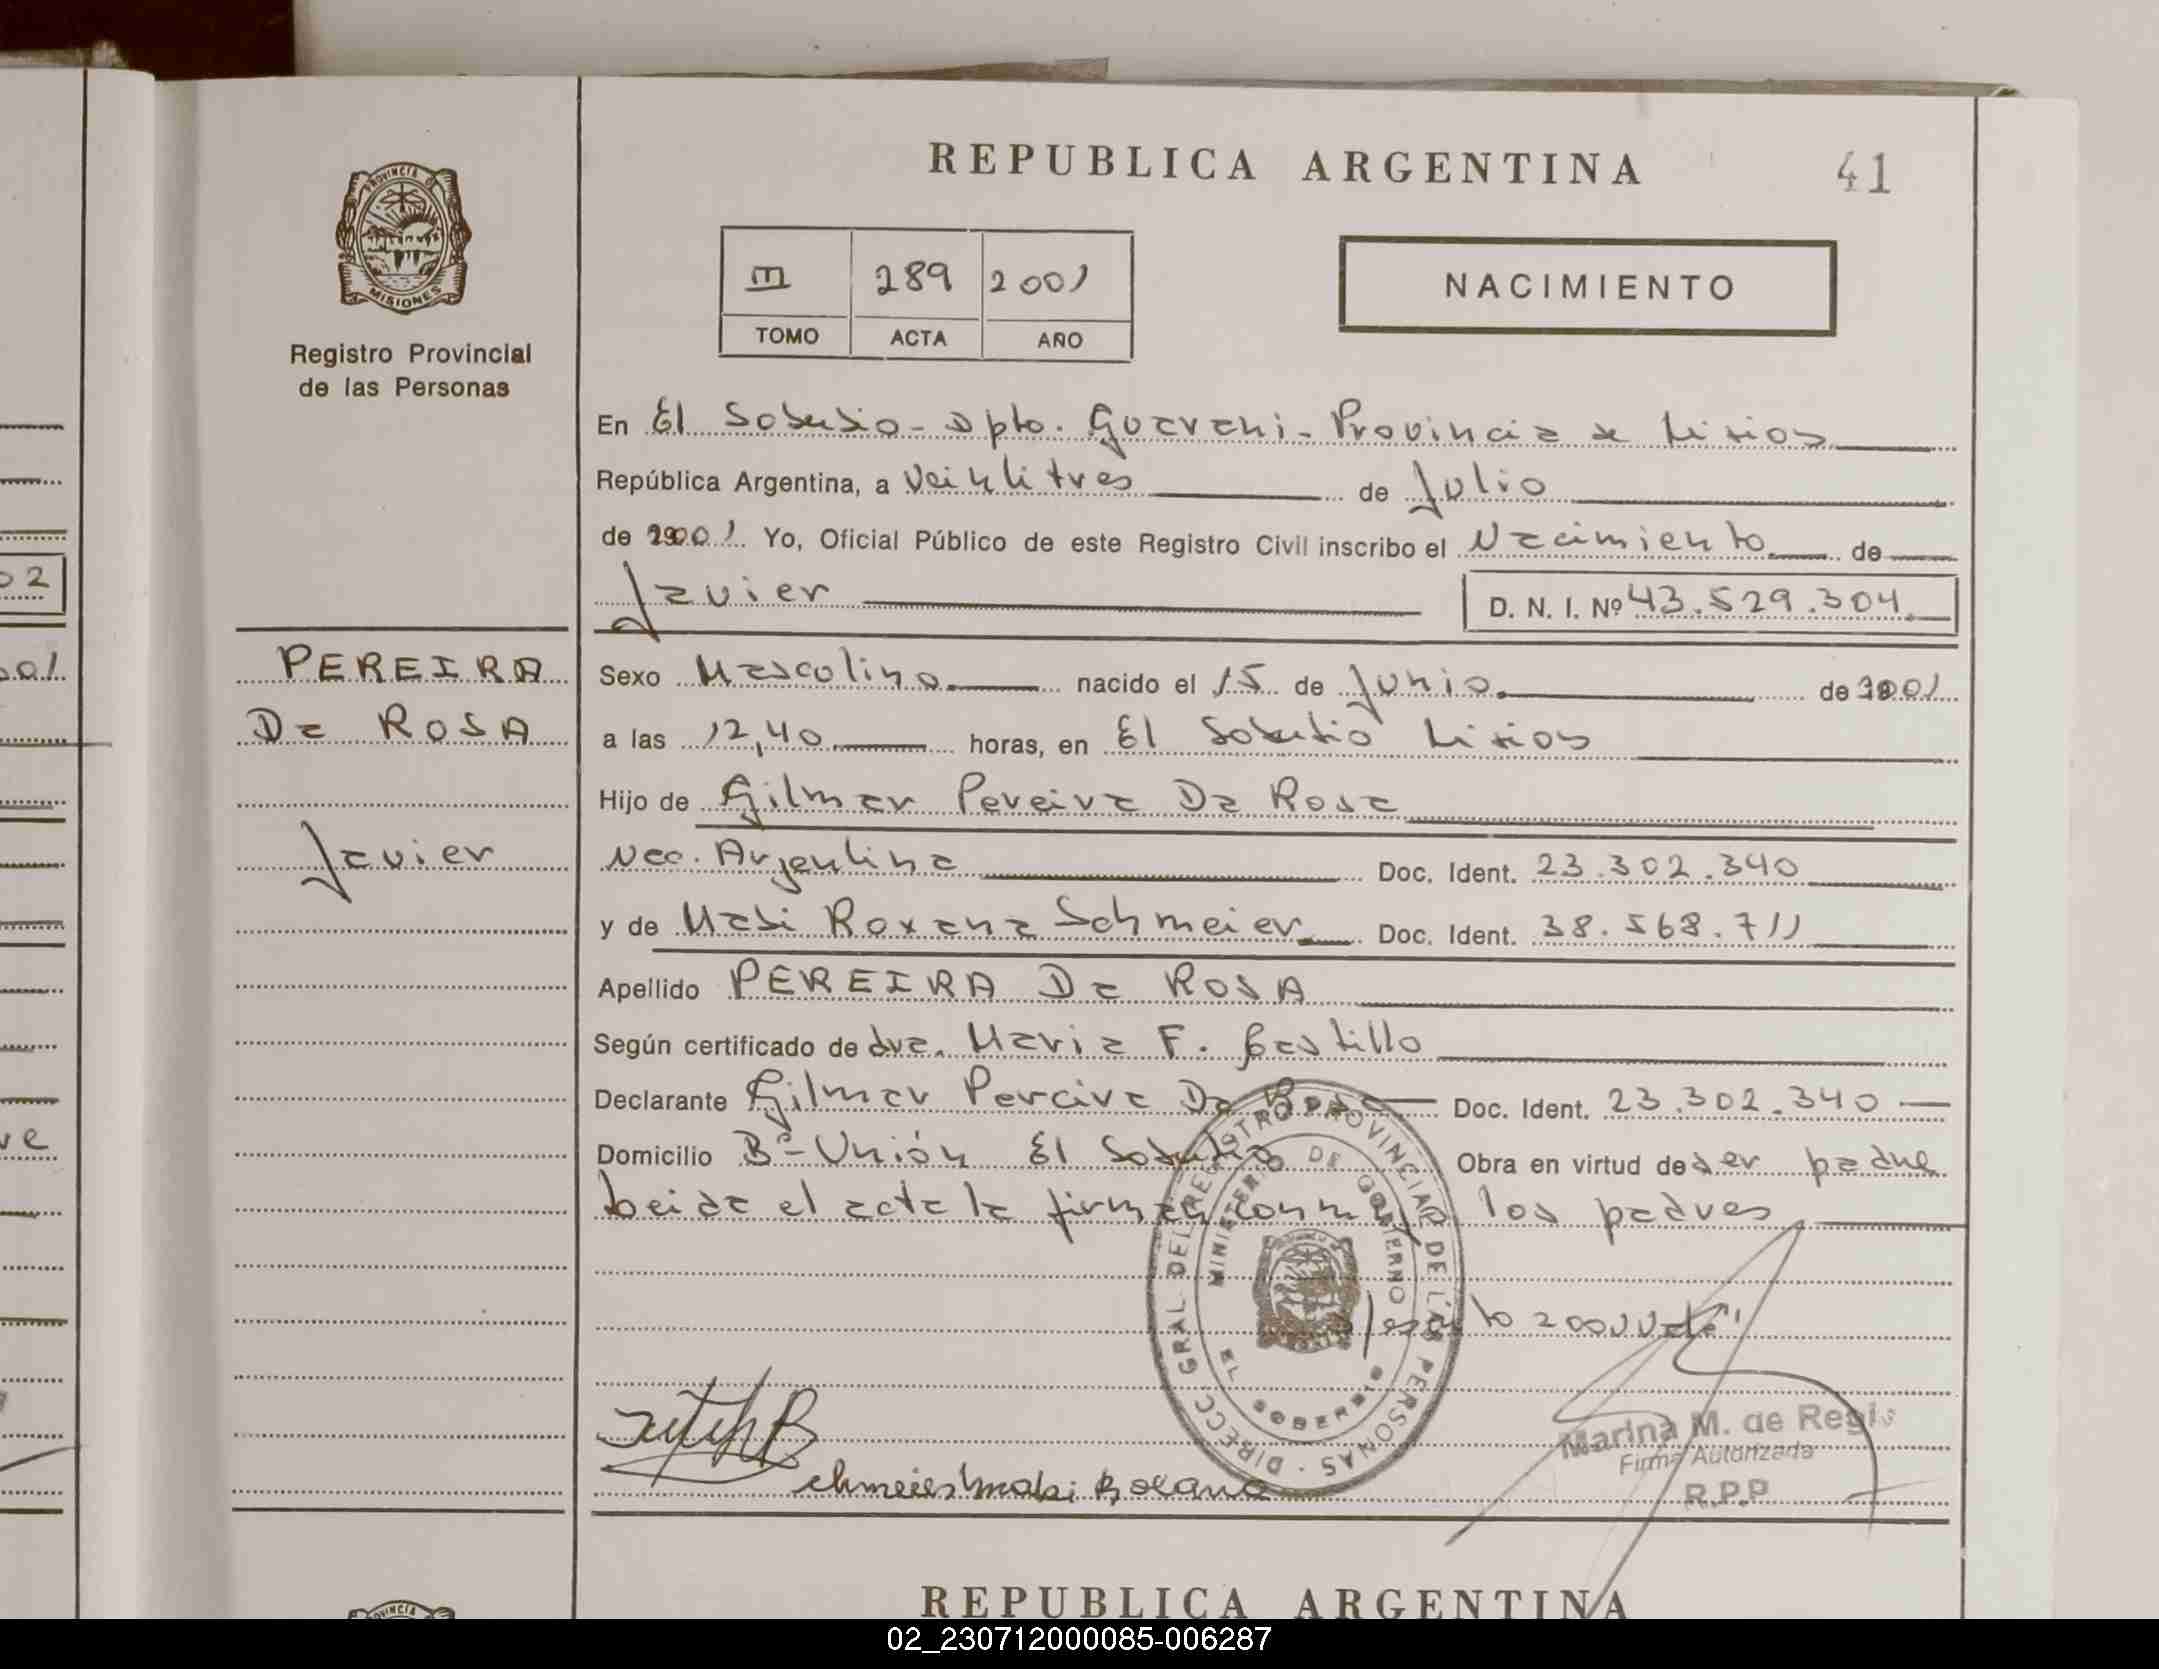 REPUBLICA ARGENTINA
41
PROVINCIA DE
MISIONES
Registro Provincial
de las Personas
III 289 2001
TOMO ACTA AÑO
NACIMIENTO
En El Soberbio - Dpto. Guarani - Provincia de Misiones
República Argentina, a Veintitres de Julio
de 2001 Yo, Oficial Público de este Registro Civil inscribo el Nacimiento de
Javier D. N. I. Nº 43.529.304.
02
PEREIRA
Da ROSA
Javier
Sexo Masculino nacido el 15 de Junio de 2001
a las 12,40 horas, en El Soberbio Misiones
Hijo de Gilmar Pereira Da Rosa
Nac. Argentina Doc. Ident. 23.302.340
y de Mabi Roxana Schmeier Doc. Ident. 38.568.711
Apellido PEREIRA Da ROSA
Según certificado de dra. Maria F. Castillo
Declarante Gilmar Pereira Da Rosa Doc. Ident. 23.302.340
Domicilio Bº Unión El Soberbio Obra en virtud de ser padre
Leida el acta la firman conmigo los padres
2001 vale
DIRECC GRAL DEL REGISTRO PROVINCIAL DE LAS PERSONAS
MINISTERIO DE GOBIERNO
EL SOBERBIO
Marina M. de Regis
Firma Autorizada
R.P.P
Schmeier Mabi Roxana
REPUBLICA ARGENTINA
PROVINCIA
02_230712000085-006287